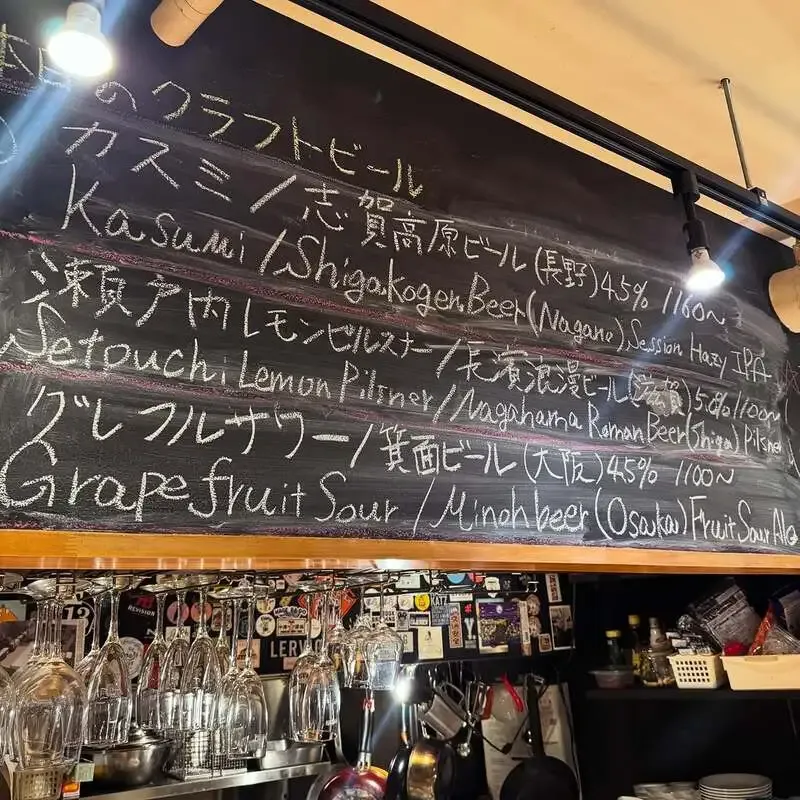 本日のクラフトビール
カスミ/志賀高原ビール(長野)4.5% 1160~
Kasumi/Shigakogen Beer(Nagano)Session Hazy IPA
瀬戸内レモンピルスナー/長濱浪漫ビール(滋賀)5.0% 1100~
Setouchi Lemon Pilsner/Nagahama Roman Beer(Shiga)Pilsner
グレフルサワー/箕面ビール(大阪)4.5% 1100~
Grapefruit Sour/Minoh beer(Osaka)Fruit Sour Ale
REVISION
LERVIG